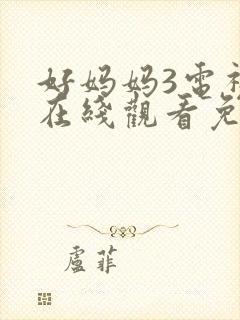 好妈妈3電視
在綫觀看免
盧菲